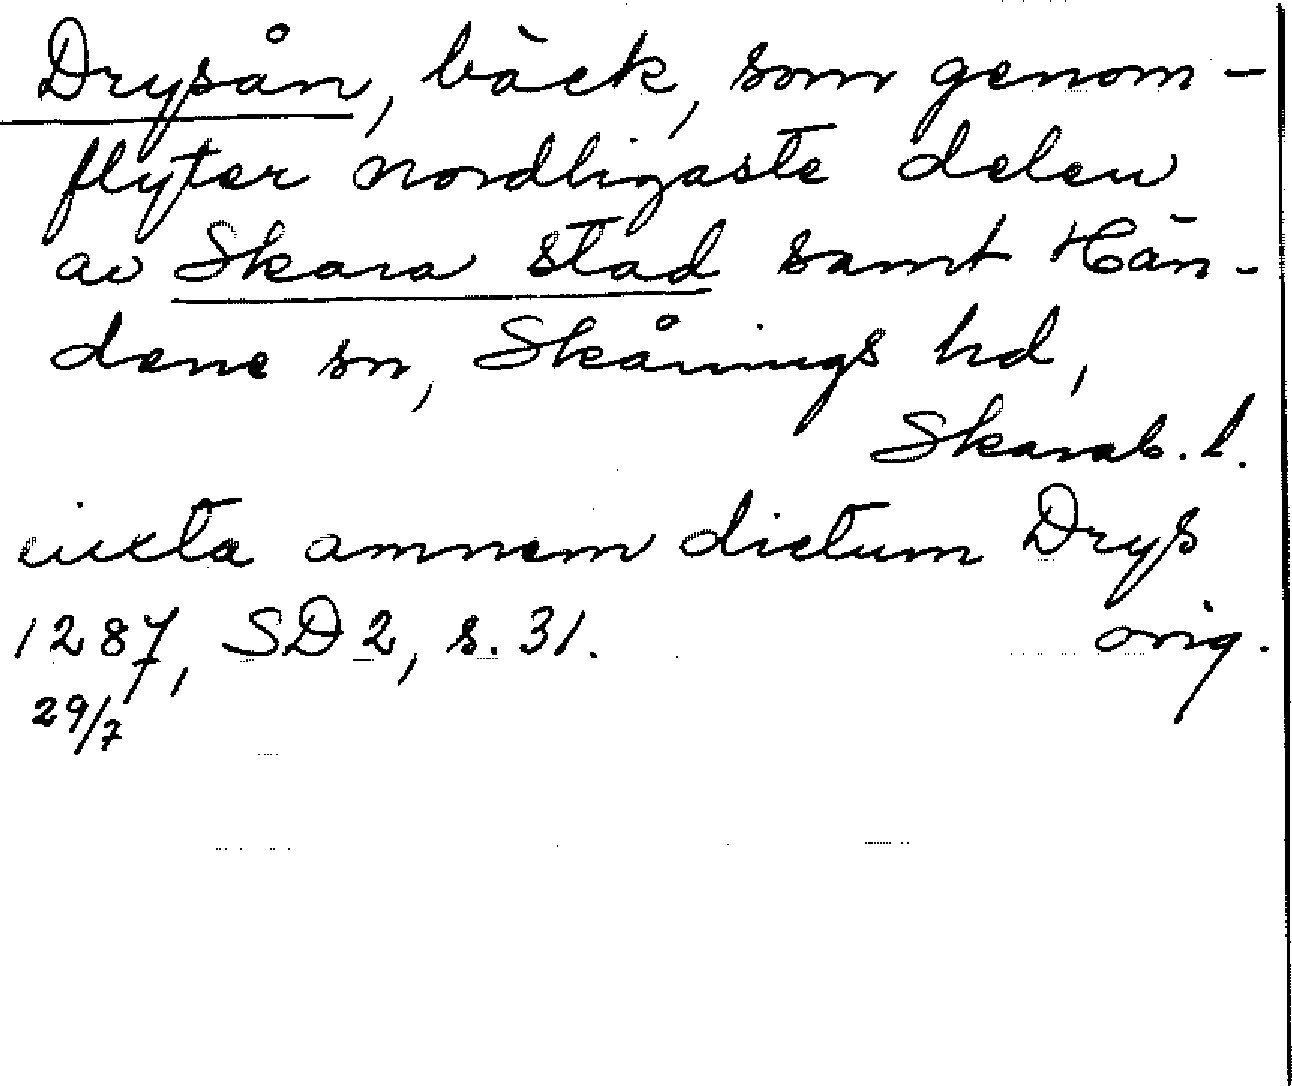 Drysån, bäck, som genom-
flyter nordligaste delen
av Skara stad samt Hän-
dene sn, Skånings hd,
Skarab. l.
iuxta amnem dictum Drys
1287, SD 2, s. 31. orig.
29/7